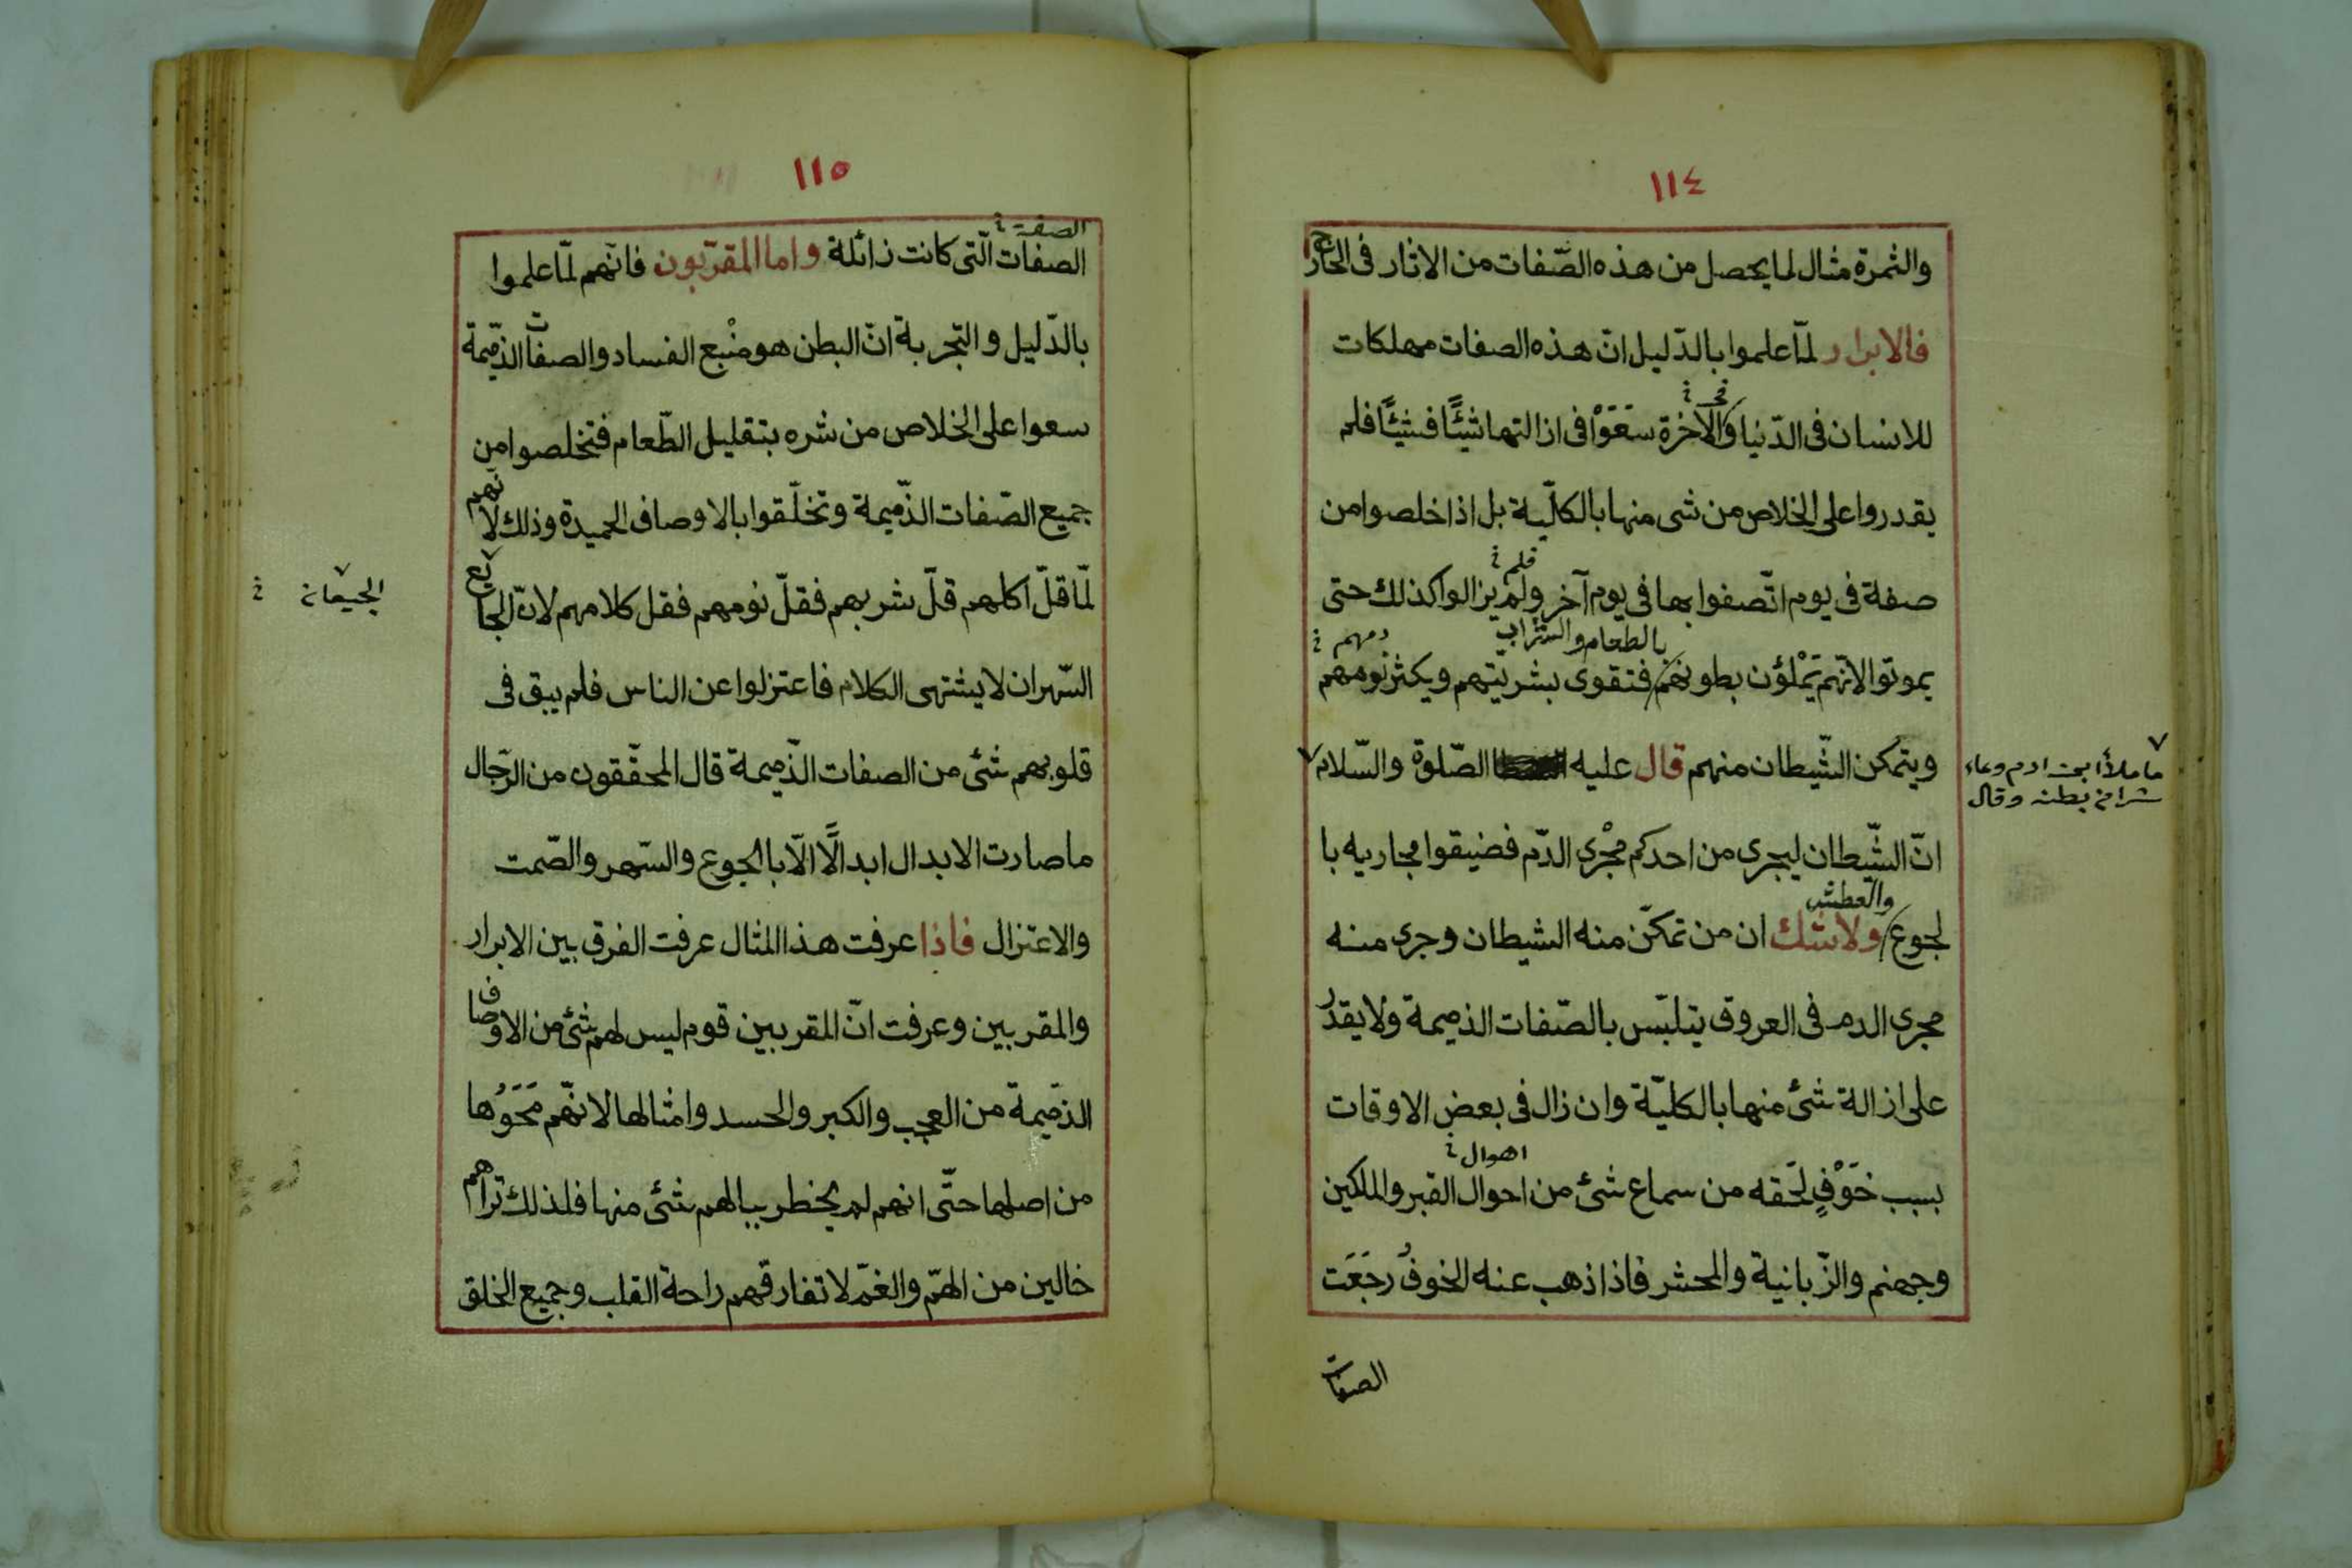 ١١٤
والثمرة مثال لما يحصل من هذه الصّفات من الاثار فى الخارج
فالابرار لمّا علموا بالدّليل انّ هذه الصفات مهلكات
للانسان فى الدّنيا والاخرة سَعَوْا فى ازالتها شيئًا فشيئًا فلم
يقدروا على الخلاص من شى منها بالكلّية بل اذا خلصوا من
فلم
صفة فى يوم اتّصفوا بها فى يوم آخر ولم يزالوا كذلك حتى
بالطعام والشراب
يموتوا لانّهم يَمْلؤن بطونهم فتقوى بشريّتهم ويكثر نومهم
ويتمكن الشّيطان منهم قال عليه الصّلوة والسّلام
ما ملأ ابن ادم وعاء
شرا من بطنه وقال
انّ الشّيطان ليجرى من احدكم مجْرى الدّم فضيقوا مجاريه با
والعطش
لجوع ولاشك ان من تمكّن منه الشيطان وجرى منه
مجرى الدم فى العروق يتلبّس بالصّفات الذميمة ولا يقدر
على ازالة شئ منها بالكليّة وان زال فى بعض الاوقات
اهوال
بسبب خَوْفٍ لَحَقه من سماع شئ من احوال القبر والملكين
وجهنم والزّبانية والمحشر فاذا ذهب عنه الخوفُ رجَعَت
الصفات
١١٥
الصفة
الصفات الّتى كانت زائلة واما المقرّبون فانّهم لمّا علموا
بالدّليل والتّجربة انّ البطن هو منْبع الفساد والصفات الذّميمة
سعوا على الخلاص من شره بتقليل الطّعام فتخلصوا من
جميع الصّفات الذّميمة وتخلّقوا بالاوصاف الحميدة وذلك لانّهم
لمّا قلّ اكلهم قلّ شربهم فقلّ نومهم فقل كلامهم لانّ الجايع
الجيعان
السّهران لا يشتهى الكلام فاعتزلوا عن الناس فلم يبق فى
قلوبهم شئ من الصفات الذّميمة قال المحقّقون من الرّجال
ما صارت الابدال ابدالًا الّا بالجوع والسّهر والصّمت
والاعتزال فاذا عرفت هذا المثال عرفت الفرق بين الابرار
والمقربين وعرفت انّ المقربين قوم ليس لهم شئ من الاوصاف
الذميمة من العجب والكبر والحسد وامثالها لانّهم مَحَوْها
من اصلها حتّى انهم لم يخطر ببالهم شئ منها فلذلك تراهم
خالين من الهمّ والغمّ لا تفارقهم راحة القلب وجميع الخلق